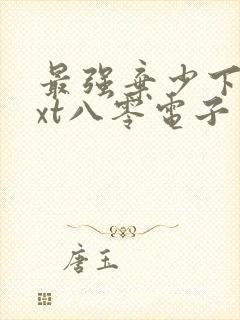 最强弃少下
xt八零电子
唐玉